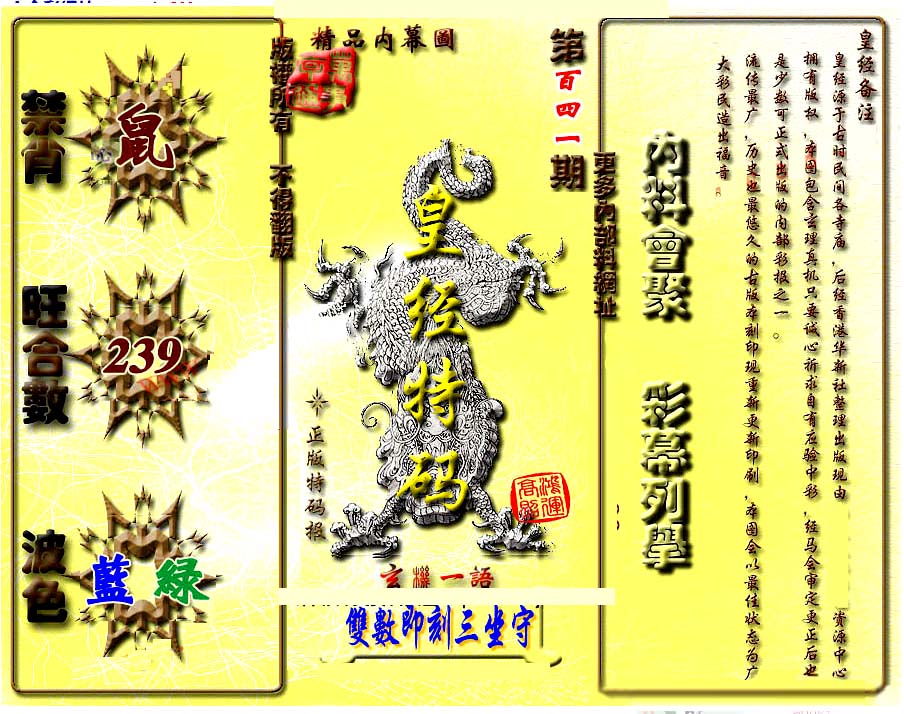 精品内幕圖
第百四一期
禁肖
鼠
旺合數
239
波色
藍 綠
版權所有 不得翻版
皇经特码
正版特码报
鴻運高照
玄機一語
雙數即刻三坐守
更多内部料網址
内料會聚
彩幕列舉
皇经备注
皇经源于古时民间各寺庙，后经香港华新社整理出版现由 资源中心
拥有版权，本图包含玄理真机只要诚心祈求自有应验中彩，经马会审定更正后也
是少数可正式出版的内部彩报之一。
流传最广，历史也最悠久的古版本刻印现重新更新印刷，本图会以最佳状态为广
大彩民造出福音